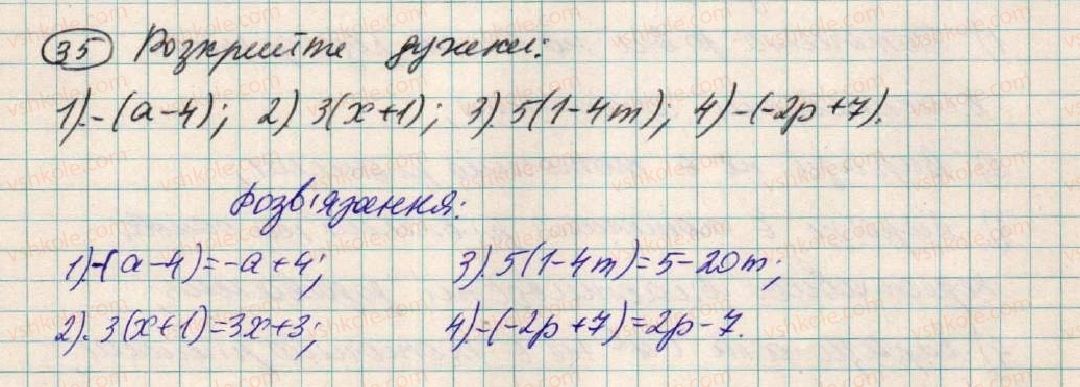 35 Розкрийте дужки:
1). -(a-4); 2) 3(x+1); 3). 5(1-4m); 4) -(-2p+7).
Розв'язання:
1) -(a-4)=-a+4; 3). 5(1-4m)=5-20m;
2). 3(x+1)=3x+3; 4). -(-2p+7)=2p-7.